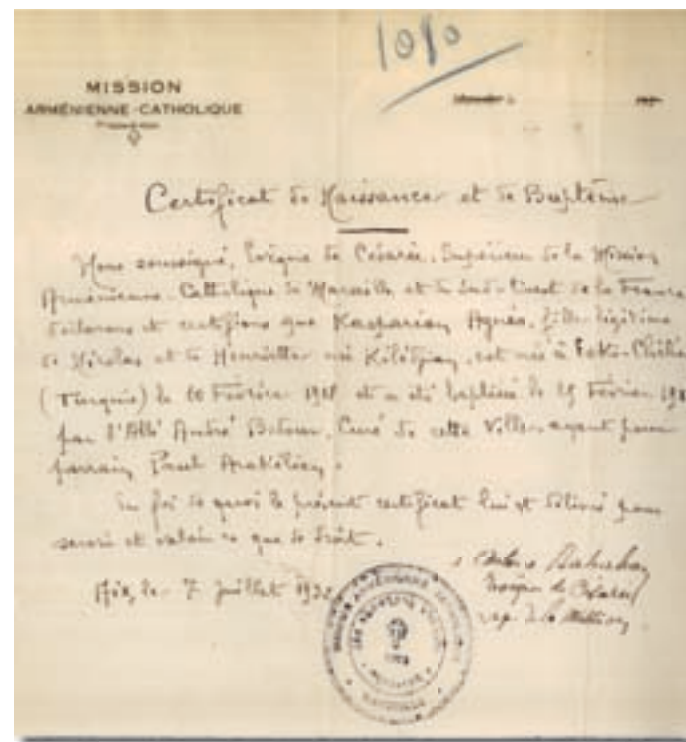 1080
MISSION
ARMÉNIENNE-CATHOLIQUE
Certificat de Naissance et de Baptême
Nous soussigné, Evêque de Césarée, Supérieur de la Mission
Arménienne-Catholique de Marseille et du Sud-Ouest de la France
déclarons et certifions que Kasparian Agnès, fille légitime
de Nicolas et de Henriette née, est née à
(Turquie) le 10 Février 19 et a été baptisée le Février 19
par l'Abbé André, Curé de cette Ville, ayant pour
parrain Paul Arakélian.
En foi de quoi le présent certificat lui est délivré pour
servir et valoir ce que de droit.
Aix, le 7 juillet 193
Evêque de Césarée
sup. de la Mission